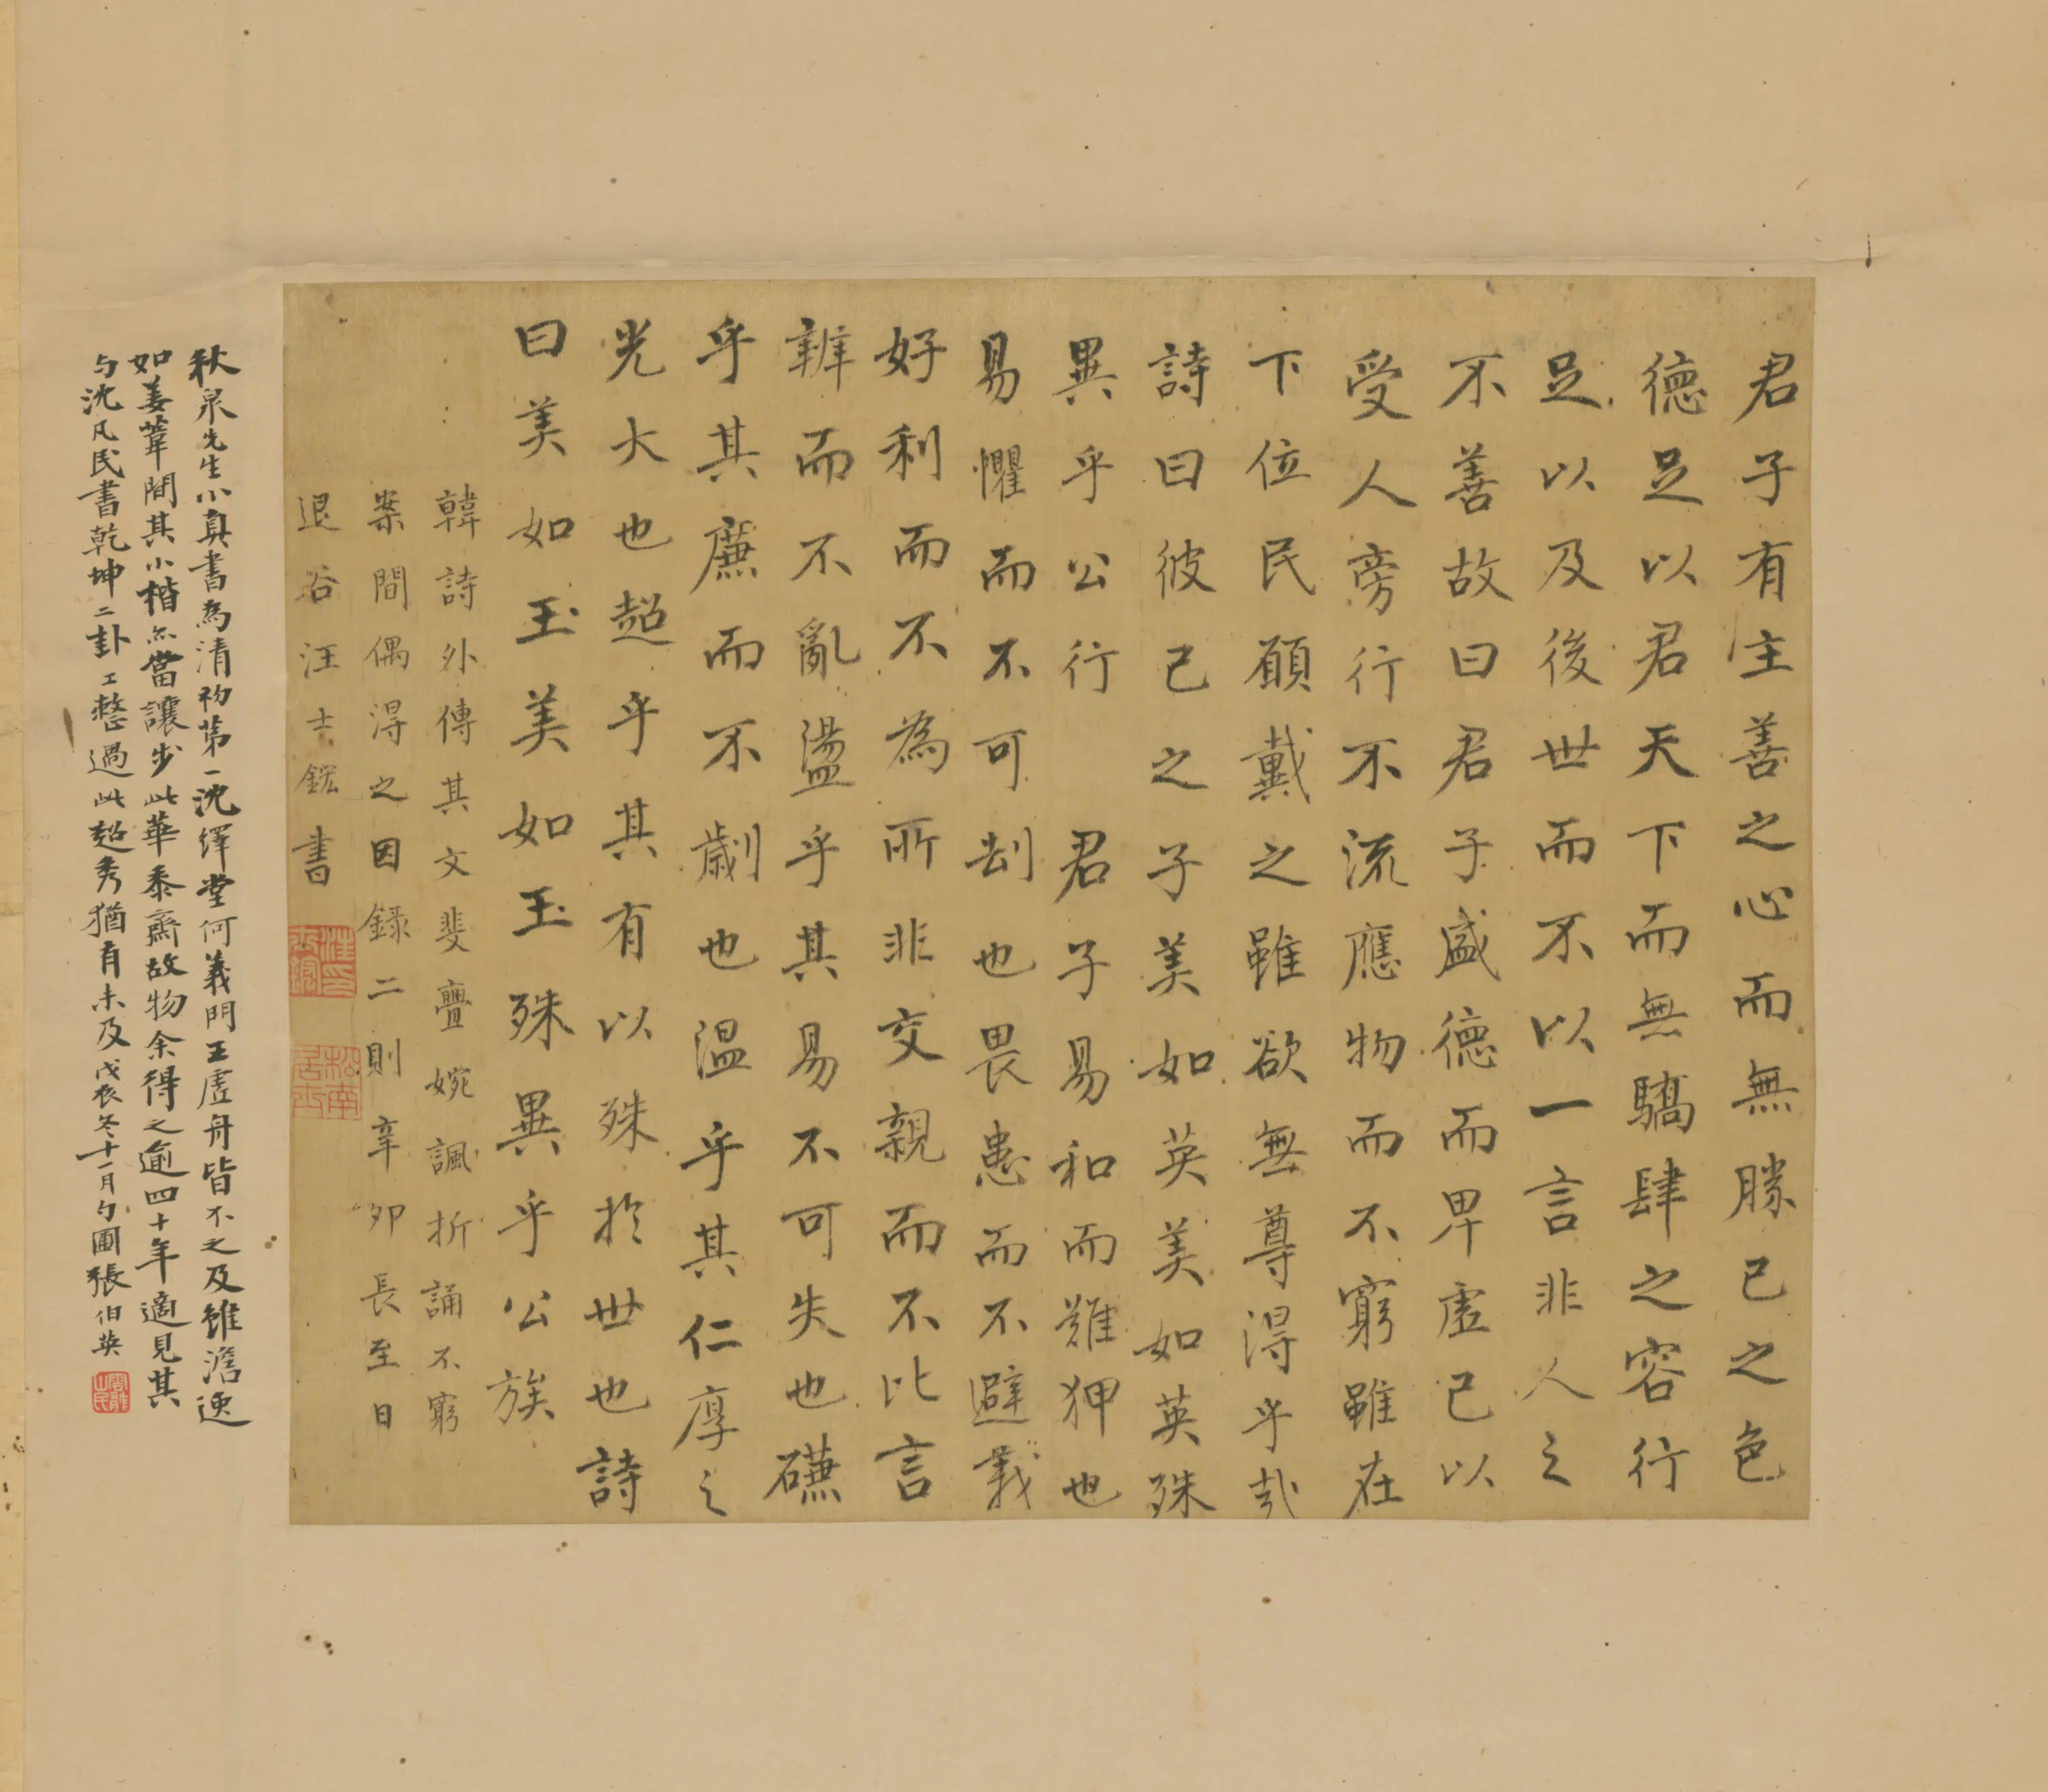 君子有主善之心而無勝己之色
德足以君天下而無驕肆之容行
足以及後世而不以一言非人之
不善故曰君子盛德而卑虛己以
受人旁行不流應物而不窮雖在
下位民願戴之雖欲無尊得乎哉
詩曰彼己之子美如英美如英殊
異乎公行 君子易和而難狎也
易懼而不可刦也畏患而不避義
好利而不為所非交親而不比言
辨而不亂盪乎其易不可失也磏
乎其廉而不劌也溫乎其仁厚之
光大也超乎其有以殊於世也詩
曰美如玉美如玉殊異乎公族
韓詩外傳其文斐亹婉諷折誦不窮
案間偶得之因錄二則辛卯長至日
退谷汪士鋐書
汪印士鋐
松南居士
秋泉先生小真書為清初第一沈繹堂何義門王虛舟皆不之及雖澹逸
如姜葦間其小楷亦當讓步此華黍齋故物余得之逾四十年適見其
与沈凡民書乾坤二卦工整過此超秀猶有未及戊辰冬十一月勺圃張伯英